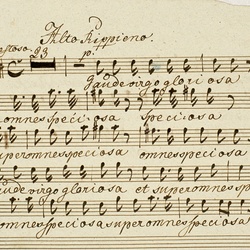 Alto Rippieno.
23 p.
gaude virgo gloriosa
omnes speciosa speciosa
super omnes speciosa omnes speciosa
gaude virgo gloriosa et super omnes sp
omnes speciosa super omnes speciosa